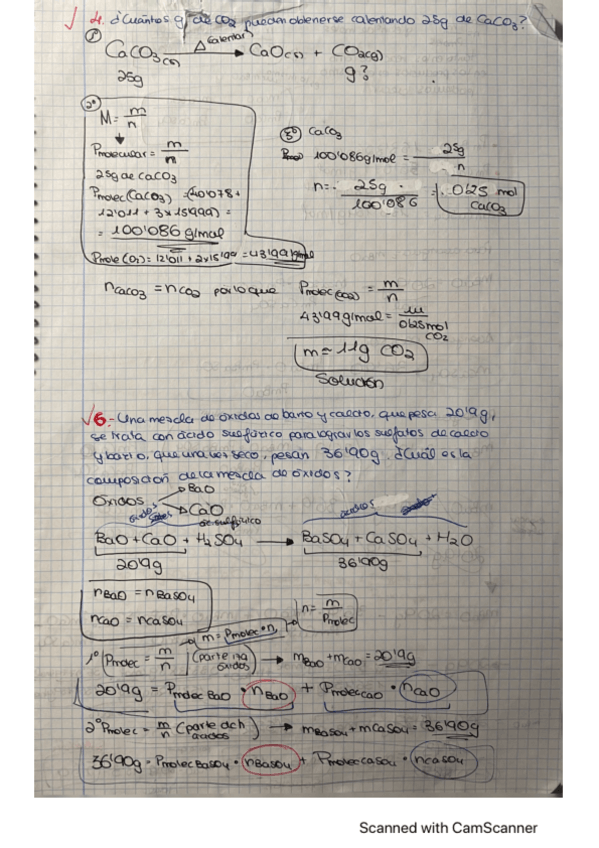 4. ¿Cuántos g de CO2 pueden obtenerse calentando 25g de CaCO3?
1º
CaCO3(s) → Δ(calentar) CaO(s) + CO2(g)
25g g?
2º
M = m/n
Pmolecular = m/n
25g de CaCO3
Pmolec(CaCO3) = (40'078 +
12'011 + 3x15'999) =
= 100'086 g/mol
Pmolec(O2) = 12'011 + 2x15'99 = 43'99 g/mol
3º CaCO3
100'086 g/mol = 25g/n
n = 25g/100'086 = 0'25 mol CaCO3
nCaCO3 = nCO2 por lo que Pmolec(CO2) = m/n
43'99 g/mol = m/0'25 mol CO2
m = 11g CO2
Solución
6.- Una mezcla de óxidos de bario y calcio, que pesa 20'9g,
se trata con ácido sulfúrico para lograr los sulfatos de calcio
y bario, que una vez seco, pesan 36'90g. ¿Cuál es la
composición de la mezcla de óxidos?
Óxidos → BaO
→ CaO
óxidos ac. sulfúrico ácidos
BaO + CaO + H2SO4 → BaSO4 + CaSO4 + H2O
20'9g 36'90g
nBaO = nBaSO4
nCaO = nCaSO4
n = m/Pmolec
m = Pmolec · n
1º Pmolec = m/n (parte izq óxidos) → mBaO + mCaO = 20'9g
20'9g = Pmolec BaO · nBaO + Pmolec CaO · nCaO
2º Pmolec = m/n (parte dch ácidos) → mBaSO4 + mCaSO4 = 36'90g
36'90g = Pmolec BaSO4 · nBaSO4 + Pmolec CaSO4 · nCaSO4
Scanned with CamScanner